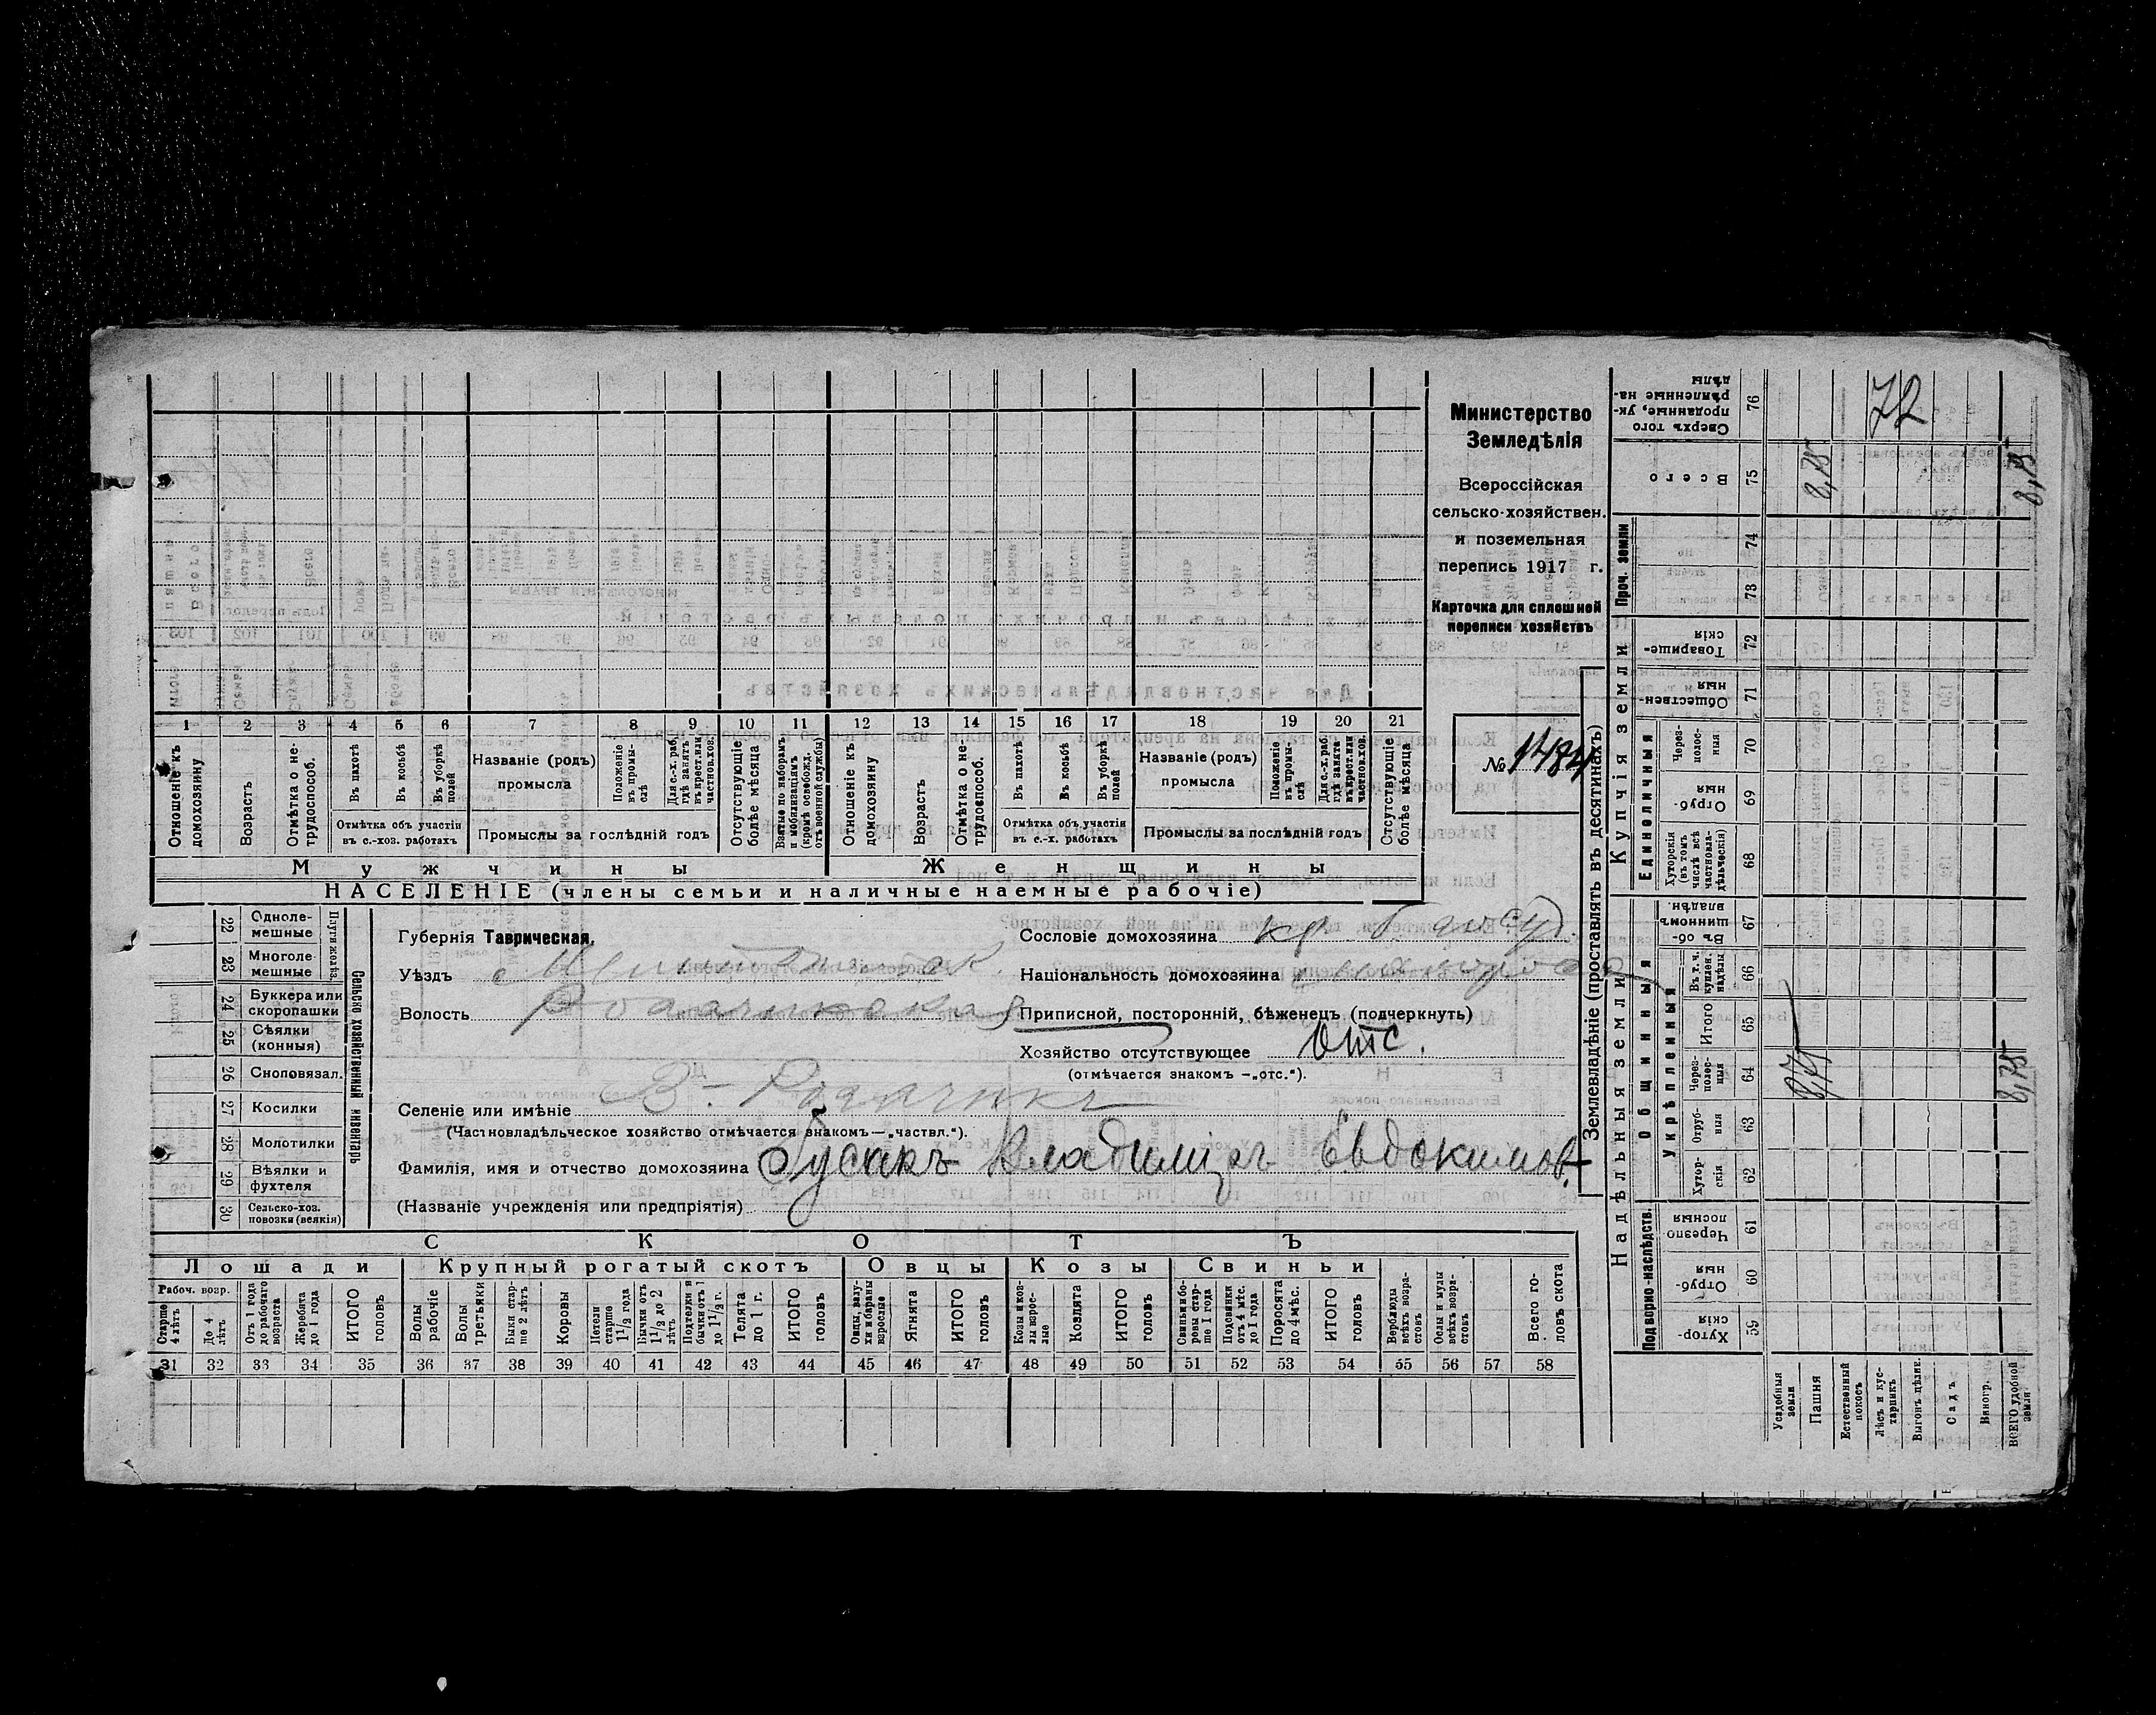 Министерство
Земледѣлія
Всероссійская
сельско-хозяйствен.
и поземельная
перепись 1917 г.
Карточка для сплошной
переписи хозяйствъ
№ 1484
1 2 3 4 5 6 7 8 9 10 11 12 13 14 15 16 17 18 19 20 21
Отношеніе къ домохозяину
Возрастъ
Отмѣтка о не-трудоспособ.
Въ пахотѣ
Въ косьбѣ
Въ уборкѣ полей
Отмѣтка объ участіи въ с.-хоз. работахъ
Названіе (родъ) промысла
Положеніе въ промы-слѣ
Для с.-х. раб. гдѣ занятъ въ крест. или частнов. хоз.
Промыслы за послѣдній годъ
Отсутствующіе болѣе мѣсяца
Взятые по наборамъ и мобилизаціямъ (кромѣ освобожд. отъ военной службы)
Отношеніе къ домохозяину
Возрастъ
Отмѣтка о не-трудоспособ.
Въ пахотѣ
Въ косьбѣ
Въ уборкѣ полей
Отмѣтка объ участіи въ с.-х. работахъ
Названіе (родъ) промысла
Положеніе въ промы-слѣ
Для с.-х. раб. гдѣ занята въ крест. или частнов. хоз.
Промыслы за послѣдній годъ
Отсутствующіе болѣе мѣсяца
Мужчины Женщины
НАСЕЛЕНІЕ (члены семьи и наличные наемные рабочіе)
22 Одноле-мешные
23 Многоле-мешные
Плуги желѣз.
24 Буккера или скоропашки
25 Сѣялки (конныя)
26 Сноповязал.
27 Косилки
28 Молотилки
29 Вѣялки и фухтеля
30 Сельско-хоз. повозки (всякія)
Сельско хозяйственный инвентарь
Губернія Таврическая.
Уѣздъ
Волость
Селеніе или имѣніе В-Рогачикъ
(Частновладѣльческое хозяйство отмѣчается знакомъ—„частвл.“).
Фамилія, имя и отчество домохозяина Гусакъ Владиміръ Евдокимов.
(Названіе учрежденія или предпріятія)
Сословіе домохозяина кр.
Національность домохозяина
Приписной, посторонній, бѣженецъ (подчеркнуть)
Хозяйство отсутствующее отс.
(отмѣчается знакомъ —„отс.“).
СКОТЪ
Лошади Крупный рогатый скотъ Овцы Козы Свиньи
Рабоч. возр.
Старше 4 лѣтъ
До 4 лѣтъ
Отъ 1 года до рабочаго возраста
Жеребята до 1 года
ИТОГО головъ
Волы рабочіе
Волы третьяки
Быки стар-ше 2 лѣтъ
Коровы
Нетели старше 1 1/2 года
Бычки отъ 1 1/2 до 2 лѣтъ
Подтелки и бычки отъ 1 до 1 1/2 г.
Телята до 1 г.
ИТОГО головъ
Овцы, валу-хи и бараны взрослые
Ягнята
ИТОГО головъ
Козы и коз-лы взрос-лые
Козлята
ИТОГО головъ
Свиньи и бо-ровы стар-ше 1 года
Подсвинки отъ 4 мѣс. до 1 года
Поросята до 4 мѣс.
ИТОГО головъ
Верблюды всѣхъ возра-стовъ
Ослы и мулы всѣхъ возра-стовъ
Всего го-ловъ скота
31 32 33 34 35 36 37 38 39 40 41 42 43 44 45 46 47 48 49 50 51 52 53 54 55 56 57 58
Землевладѣніе (проставлять въ десятинахъ)
Надѣльныя земли
Купчія земли
Проч. земли
Подворно-наслѣдств.
Общинныя
Укрѣпленныя
Единоличныя
Хутор-скія 59
Отруб-ныя 60
Черезпо-лосныя 61
Хутор-скія 62
Отруб-ныя 63
Через-полос-ныя 64
Итого 65
Въ т. ч. куплен. надѣлы 66
Въ об-щинномъ владѣн. 67
Хуторскія (въ томъ числѣ всѣ частновла-дѣльческія) 68
Отруб-ныя 69
Через-полос-ныя 70
Обществен-ныя 71
Товарище-скія 72
73
74
Всего 75
Сверхъ того проданные, ук-рѣпленные на-дѣлы 76
Усадебныя земли
Пашня
Естественный покосъ
Лѣсъ и кус-тарникъ
Выгонъ цѣлик.
Садъ
Виногр.
ВСЕГО удобной земли
8,75
8,75
8,75
8,75
72